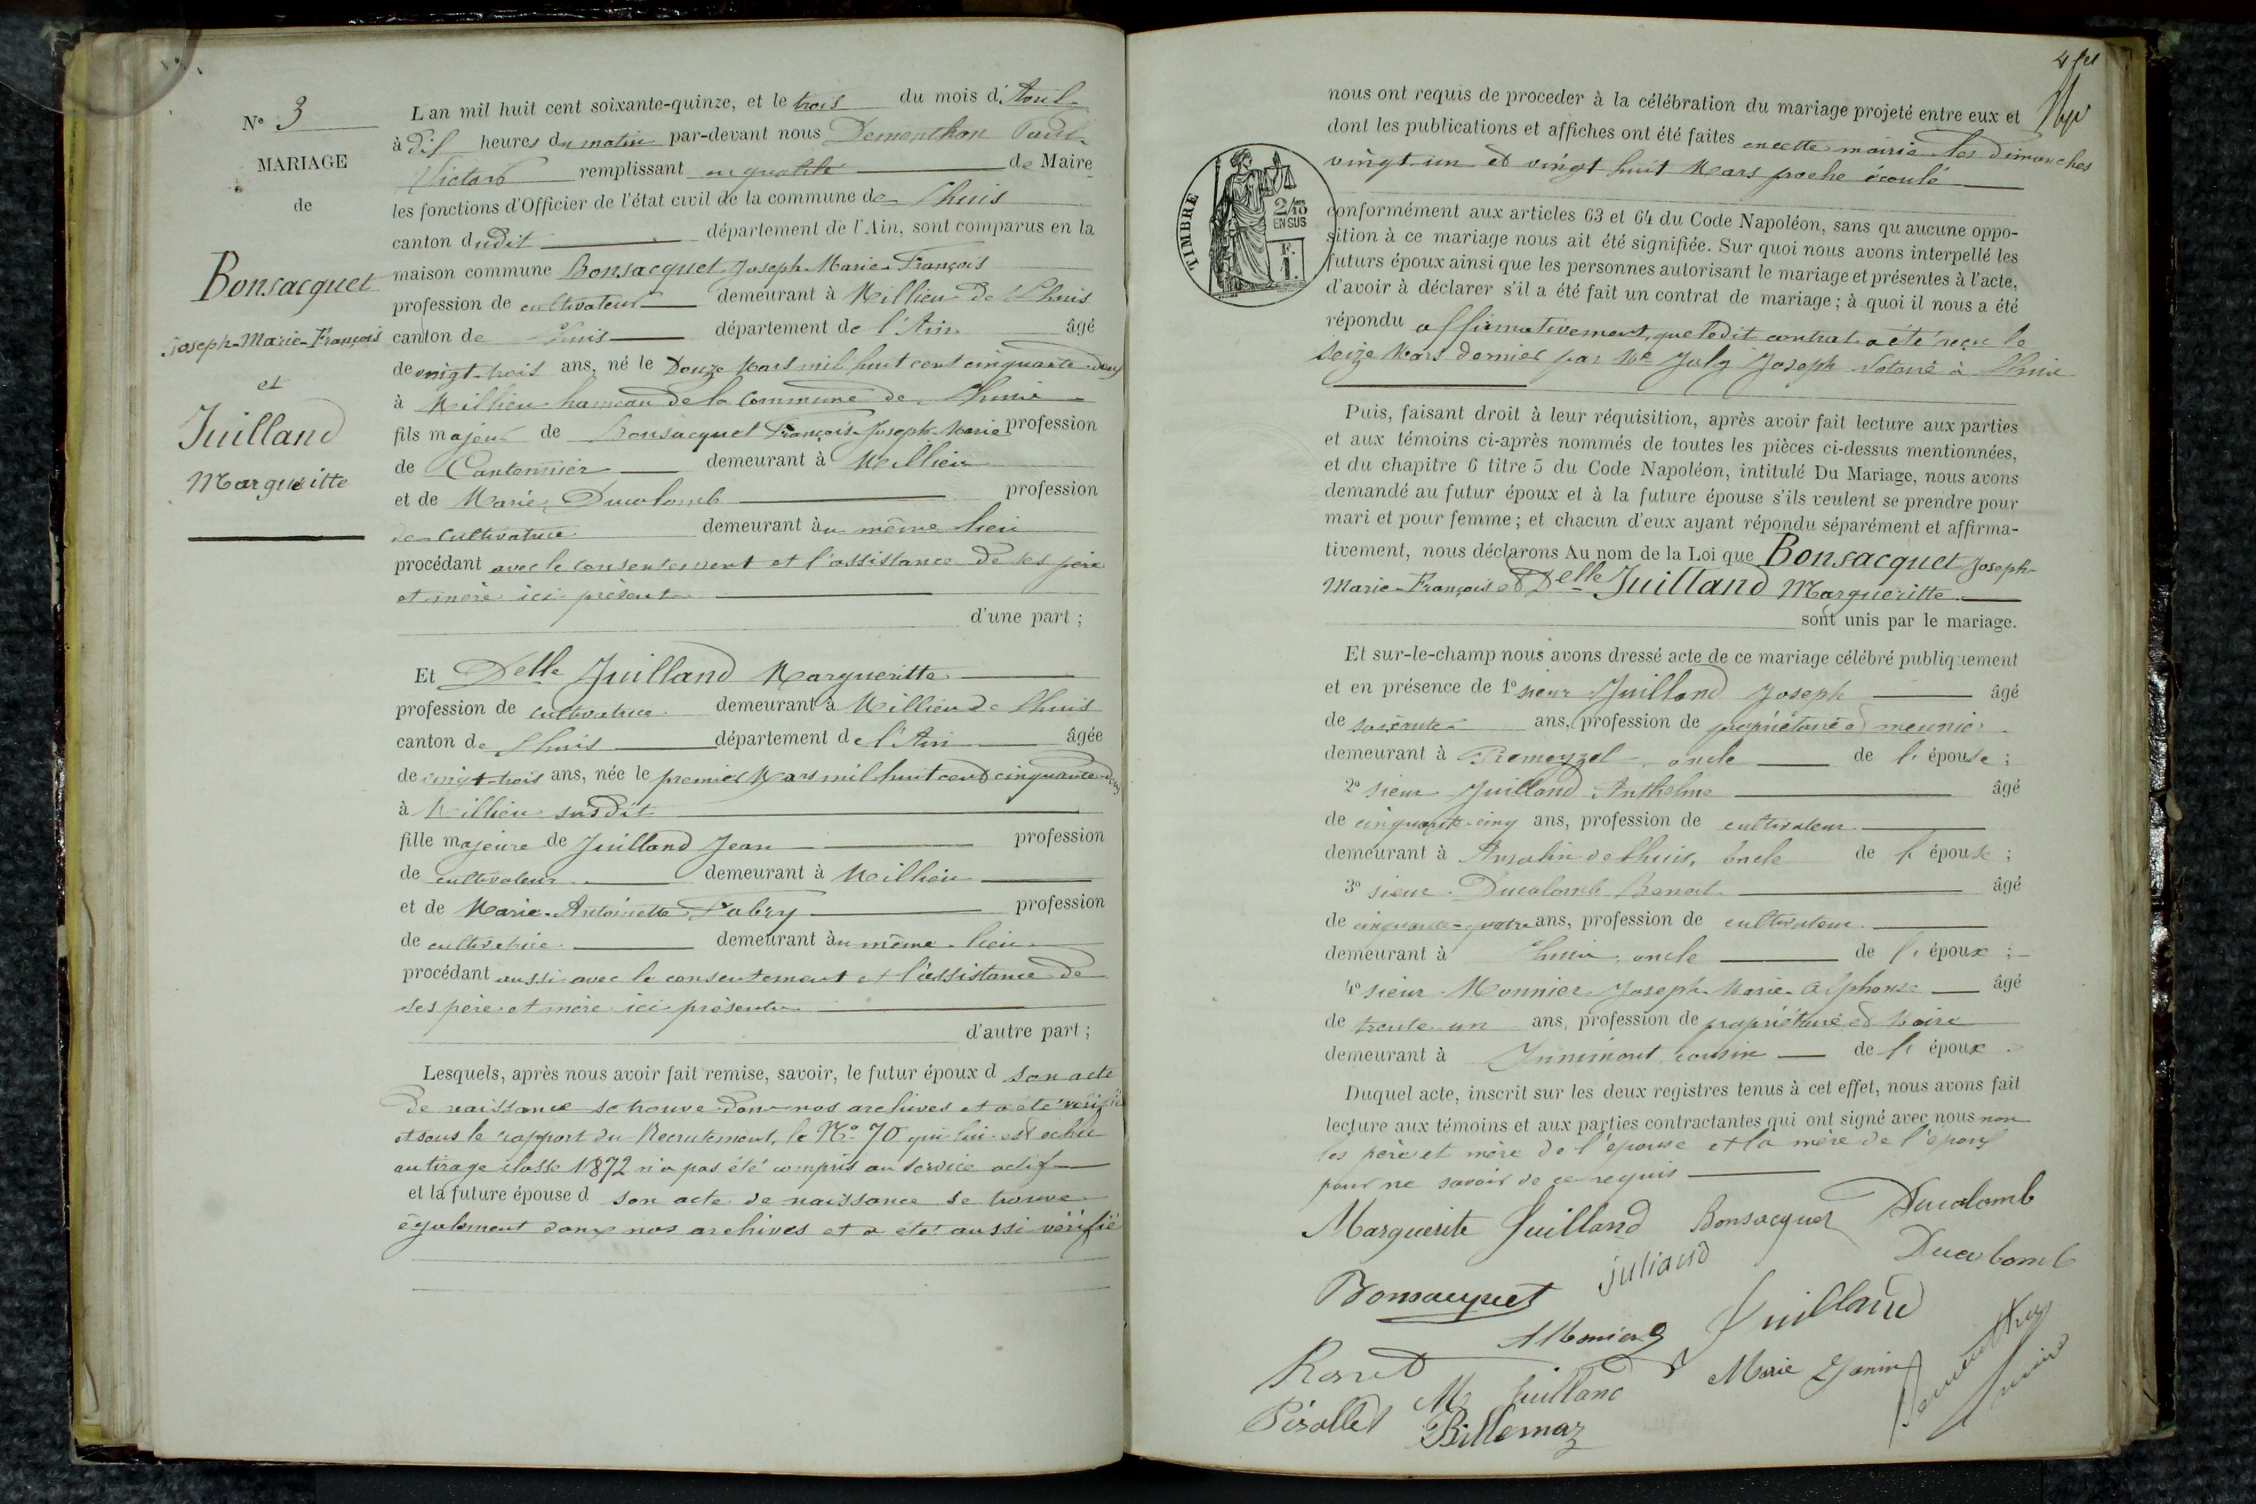 N° 3
MARIAGE
de
Bonsacquet
Joseph-Marie-François
et
Juilland
Margueritte
L'an mil huit cent soixante-quinze, et le trois du mois d'Avril
à dix heures du matin par-devant nous Dementhon Paul
Victor remplissant en qualité de Maire
les fonctions d'Officier de l'état civil de la commune de Lhuis
canton dudit département de l'Ain, sont comparus en la
maison commune Bonsacquet Joseph-Marie-François
profession de cultivateur demeurant à Millieu de Lhuis
canton de Lhuis département de l'Ain âgé
de vingt-trois ans, né le Douze Mars mil huit cent cinquante-deux
à Millieu hameau de la Commune de Lhuis
fils majeur de Bonsacquet François-Joseph-Marie profession
de Cantonnier demeurant à Millieu
et de Marie Ducolomb profession
de cultivatrice demeurant au même lieu
procédant avec le consentement et l'assistance de ses père
et mère ici présents
d'une part ;
Et Delle Juilland Margueritte
profession de cultivatrice demeurant à Millieu de Lhuis
canton de Lhuis département de l'Ain âgée
de vingt-trois ans, née le premier Mars mil huit cent cinquante-deux
à Millieu susdit
fille majeure de Juilland Jean profession
de cultivateur demeurant à Millieu
et de Marie-Antoinette Fabry profession
de cultivatrice demeurant au même lieu
procédant aussi avec le consentement et l'assistance de
ses père et mère ici présents
d'autre part ;
Lesquels, après nous avoir fait remise, savoir, le futur époux d son acte
de naissance se trouve dans nos archives et a été vérifié
et sous le rapport du Recrutement, le N° 70 qui lui est échu
au tirage classe 1872 n'a pas été compris au service actif
et la future épouse d son acte de naissance se trouve
également dans nos archives et a été aussi vérifié
nous ont requis de proceder à la célébration du mariage projeté entre eux et
dont les publications et affiches ont été faites en cette mairie les dimanches
vingt-un et vingt huit Mars proche écoulé
TIMBRE
2/10 EN SUS
F. 1.
conformément aux articles 63 et 64 du Code Napoléon, sans qu'aucune oppo-
sition à ce mariage nous ait été signifiée. Sur quoi nous avons interpellé les
futurs époux ainsi que les personnes autorisant le mariage et présentes à l'acte,
d'avoir à déclarer s'il a été fait un contrat de mariage ; à quoi il nous a été
répondu affirmativement, que ledit contrat a été reçu le
seize Mars dernier par Me July Joseph Notaire à Lhuis
Puis, faisant droit à leur réquisition, après avoir fait lecture aux parties
et aux témoins ci-après nommés de toutes les pièces ci-dessus mentionnées,
et du chapitre 6 titre 5 du Code Napoléon, intitulé Du Mariage, nous avons
demandé au futur époux et à la future épouse s'ils veulent se prendre pour
mari et pour femme ; et chacun d'eux ayant répondu séparément et affirma-
tivement, nous déclarons Au nom de la Loi que Bonsacquet Joseph-
Marie-François et Delle Juilland Margueritte
sont unis par le mariage.
Et sur-le-champ nous avons dressé acte de ce mariage célébré publiquement
et en présence de 1° sieur Juilland Joseph âgé
de soixante ans, profession de propriétaire et meunier
demeurant à Premeyzel oncle de l'épouse ;
2° sieur Juilland Anthelme âgé
de cinquante-cinq ans, profession de cultivateur
demeurant à Ansolin de Lhuis, oncle de l'épouse ;
3° sieur Ducolomb Benoit âgé
de cinquante-quatre ans, profession de cultivateur
demeurant à Lhuis oncle de l'époux ;
4° sieur Monnier Joseph-Marie-Alphonse âgé
de trente un ans, profession de propriétaire et Maire
demeurant à Innimont, cousin de l'époux
Duquel acte, inscrit sur les deux registres tenus à cet effet, nous avons fait
lecture aux témoins et aux parties contractantes qui ont signé avec nous non
les père et mère de l'épouse et la mère de l'époux
pour ne savoir de ce requis
Marguerite Juilland Bonsacquet Ducolomb
Bonsacquet juliand Ducolomb
AMonier Juilland
Rosset M Juilland Marie Janin Dementhon
Pérollet Billemaz maire